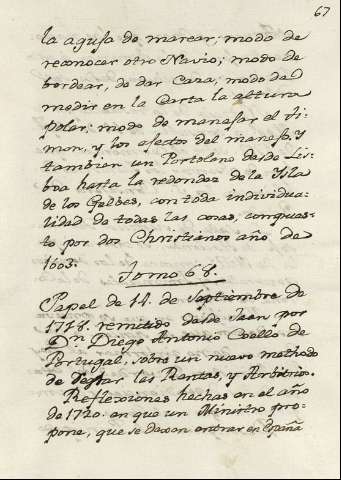 67
la aguja de marear; modo de
reconocer otro Navio; modo de
bordear, de dar Caza; modo de
medir en la Carta la altura
polar; modo de manejar el ti-
mon, y los afectos del manejo. Y
tambien un Portolano desde Lis-
boa hasta la redondez de la Ysla
de los Gelbes, con toda individua-
lidad de todas las cosas, compues-
to por dos Christianos año de
1603.
Tomo 68.
Papel de 14. de Septiembre de
1718. remitido desde Jaen por
Dn Diego Antonio Coello de
Portugal, sobre un nuevo methodo
de las Rentas, y Arbitrios.
Reflexiones hechas en el año
de 1720. en que un Ministro pro-
pone, que se dexen entrar en España